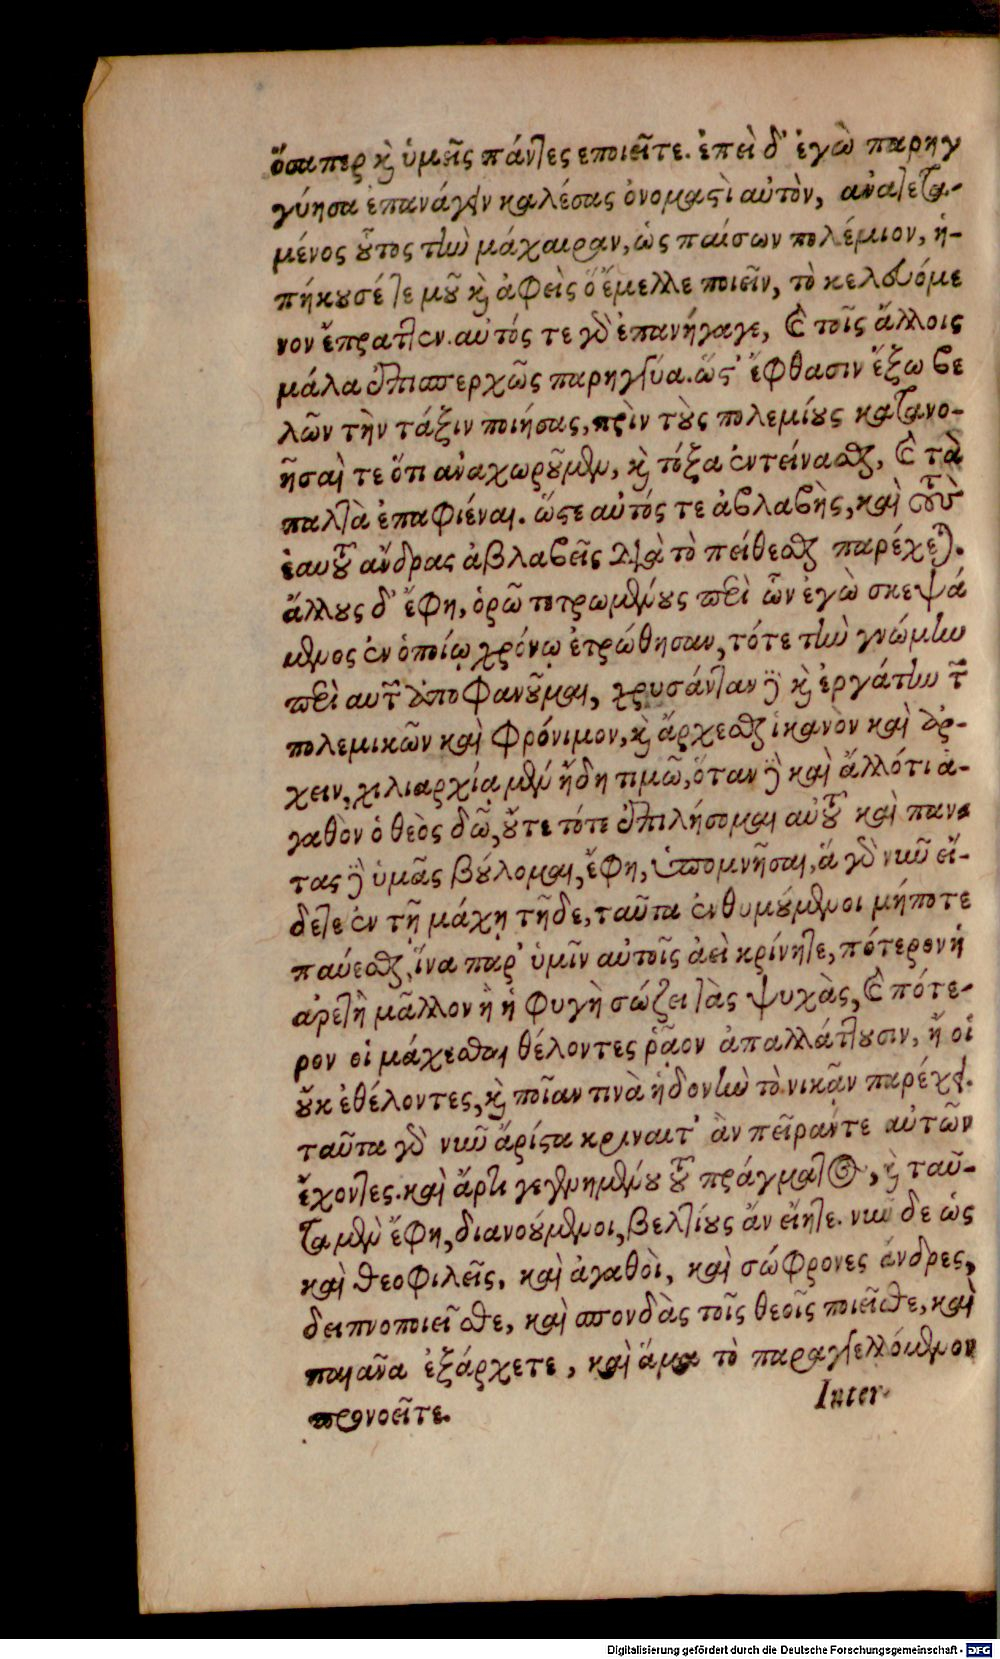 ὅσα περ κὶ ὑμεῖς πάντες εποιεῖτε. ἐπεὶ δ' ἐγὼ παρηγ
γύησα ἐπανάγειν καλέσας ὀνομαστὶ αὐτὸν, ανατετα-
μένος οὗτος τὴν μάχαιραν, ὡς παίσων πολέμιον, ἡ-
πήκουσέ τε μοῦ κὶ ἀφεὶς ὃ ἔμελλε ποιεῖν, τὸ κελευόμε
νον ἔπραττεν. αὐτός τε γὸ ἐπανήγαγε, καὶ τοῖς ἄλλοις
μάλα ἐπισπερχῶς παρηγγύα. ὥστ' ἔφθασιν ἔξω βε
λῶν τὴν τάξιν ποιήσας, πρὶν τοὺς πολεμίους κατανο-
ῆσαί τε ὅτι αναχωροῦμεν, κὶ τόξα ἐντείνασθαι, καὶ τὰ
παλτὰ ἐπαφιέναι. ὥστε αὐτός τε ἀβλαβὴς, καὶ τοὺς
ἑαυτοῦ ἄνδρας ἀβλαβεῖς διὰ τὸ πείθεσθαι παρέχεται.
ἄλλους δ' ἔφη, ὁρῶ τετρωμένους περὶ ὧν ἐγὼ σκεψά
μενος ἐν ὁποίῳ χρόνῳ ἐτρώθησαν, τότε τὴν γνώμην
περὶ αυτῶν ἀποφανοῦμαι, χρυσάνταν δὲ κὶ ἐργάτην τῶν
πολεμικῶν καὶ φρόνιμον, κὶ ἄρχεσθαι ἱκανὸν καὶ ἄρ-
χειν, χιλιαρχίᾳ μὲν ἤδη τιμῶ, ὅταν δὲ καὶ ἄλλό τι ἀ-
γαθὸν ὁ θεὸς δῶ, οὔτε τότε ἐπιλήσομαι αὐτοῦ καὶ παν-
τας δὲ ὑμᾶς βούλομαι, ἔφη, ὑπομνῆσαι, ἃ γὸ νῦν εἴ-
δετε ἐν τῇ μάχῃ τῇδε, ταῦτα ἐνθυμούμενοι μήποτε
παύεσθαι, ἵνα παρ' ὑμῖν αὐτοῖς ἀεὶ κρίνητε, πότερον ἡ
ἀρετὴ μᾶλλον ἢ ἡ φυγὴ σώζει τὰς ψυχὰς, καὶ πότε-
ρον οἱ μάχεσθαι θέλοντες ῥᾷον ἀπαλλάττουσιν, ἢ οἱ
οὔκ ἐθέλοντες, κὶ ποῖαν τινὰ ἡδονὴν τὸ νικᾶν παρέχει.
ταῦτα γὸ νῦν ἄριστα κρίναιτ' ἂν πεῖράν τε αὐτῶν
ἔχοντες. καὶ ἄρτι γεγενημένου τοῦ πράγματος, κὶ ταῦ-
τα μὲν ἔφη, διανούμενοι, βελτίους ἄν εἴητε. νῦν δε ὡς
καὶ θεοφιλεῖς, καὶ ἀγαθὸι, καὶ σώφρονες ἄνδρες,
δειπνοποιεῖσθε, καὶ σπονδὰς τοῖς θεοῖς ποιεῖσθε, καὶ
παιᾶνα ἐξάρχετε, καὶ ἅμα τὸ παραγγελλόμενον
προνοεῖτε.
Inter-
Digitalisierung gefördert durch die Deutsche Forschungsgemeinschaft - DFG